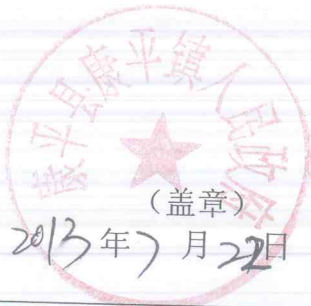 康平县康平镇人民政府
（盖章）
2013年7月22日